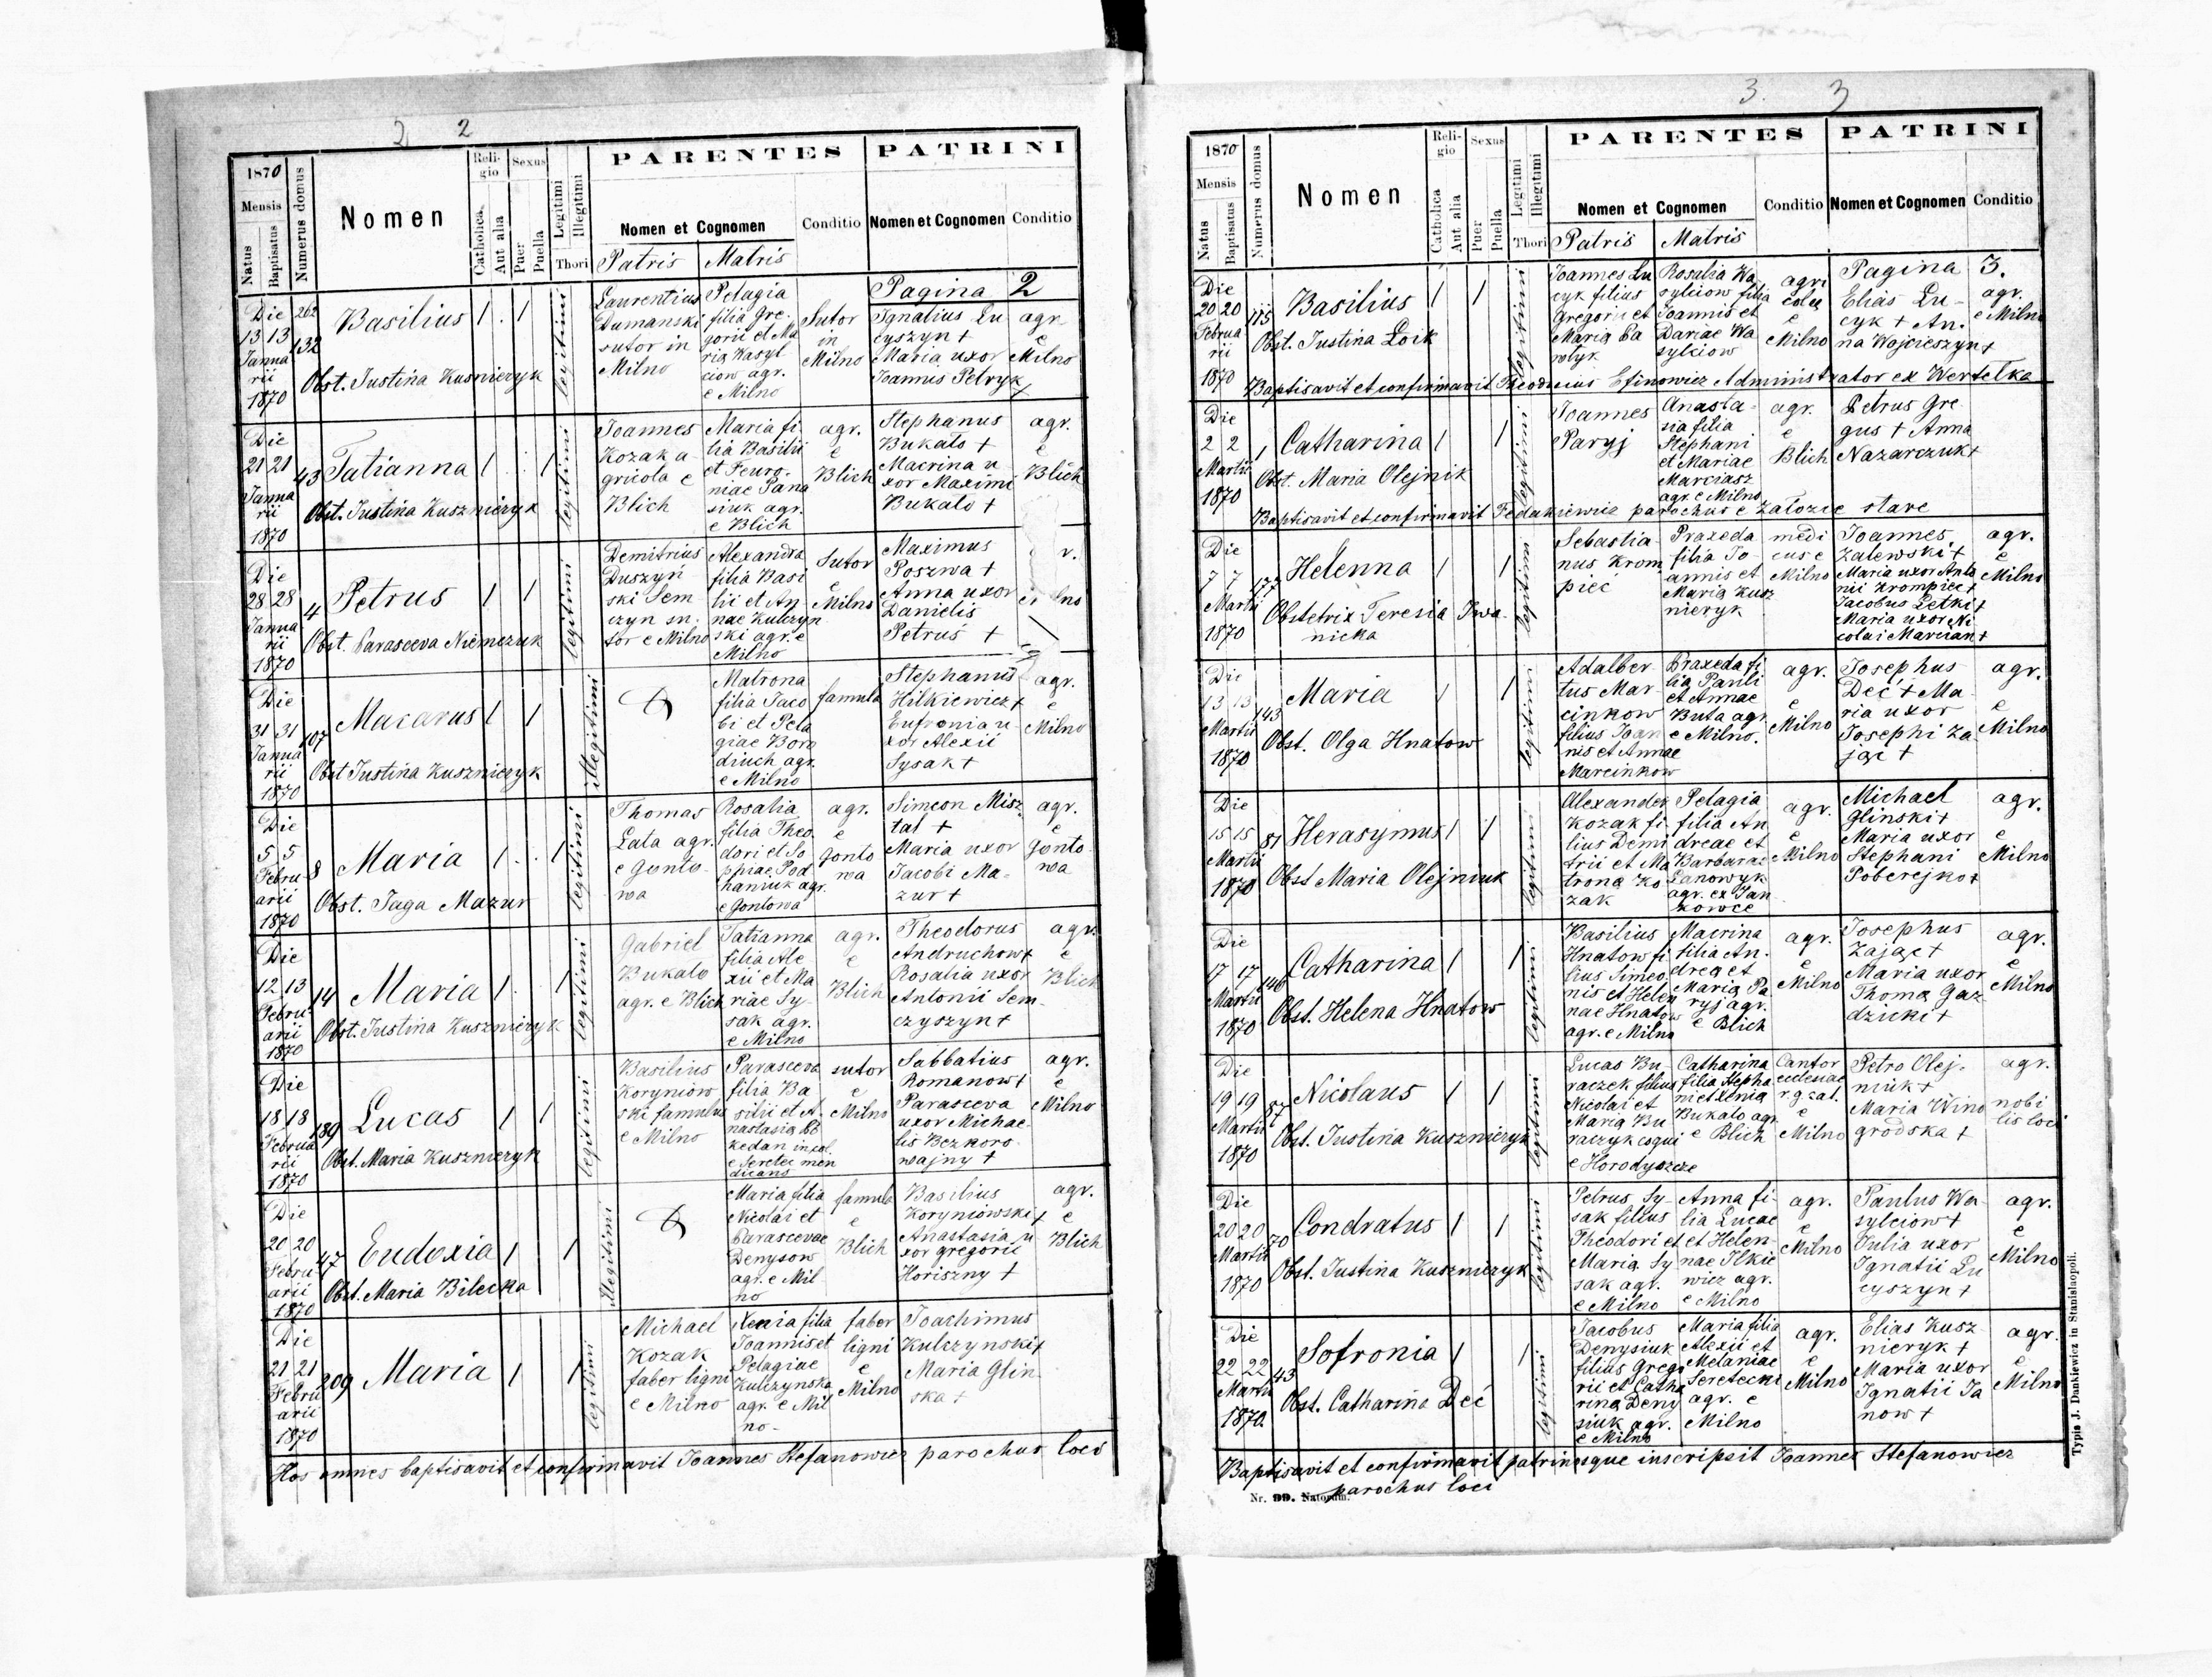 2 2
1870
Mensis
Natus
Baptisatus
Numerus domus
Nomen
Religio
Catholica
Aut alia
Sexus
Puer
Puella
Legitimi
Illegitimi
Thori
PARENTES
Nomen et Cognomen
Conditio
Patris
Matris
PATRINI
Nomen et Cognomen
Conditio
Pagina 2
Die
13 13
Janua
rii
1870
262
132
Basilius
Obst. Justina Kusznieryk
legitimi
Laurentius
Dumanski
sutor in
Milno
Pelagia
filia Gre-
gorii et Ma
ria Wasyl
ciow agr.
e Milno
Sutor
in
Milno
Ignatius Lu
cyszyn +
Maria uxor
Joannis Petryk
agr.
e
Milno
Die
21 21
Janua
rii
1870
43
Tatianna
Obst. Justina Kusznieryk
legitimi
Joannes
Kozak a-
gricola e
Blich
Maria fi-
lia Basilii
et Feuro-
niae Pana
siuk agr.
e Blich
agr.
e
Blich
Stephanus
Bukalo +
Macrina u
xor Maximi
Bukalo +
agr.
e
Blich
Die
28 28
Janua
rii
1870
4
Petrus
Obst. Parasceva Niemczuk
legitimi
Demitrius
Duszyń
ski Sem
czyn su-
tor e Milno
Alexandra
filia Basi
lii et An
nae Kulczyn
ski agr. e
Milno
Sutor
e
Milno
Maximus
Poszwa +
Anna uxor
Danielis
Petrus +
Die
31 31
Janua
rii
1870
107
Macarus
Obst Justina Kusznieryk
illegitimi
Matrona
filia Jaco
bi et Pela
giae Boro
diuch agr.
e Milno
famula
Stephanus
Hilkiewicz +
Eufronia u-
xor Alexii
Sysak +
agr.
e
Milno
Die
5 5
Febru-
arii
1870
8
Maria
Obst. Jaga Mazur
legitimi
Thomas
Lata agr.
e Gonto-
wa
Rosalia
filia Theo-
dori et So
phiae Pod
haniuk agr.
e Gontowa
agr.
e
Gonto
wa
Simeon Misz
tal +
Maria uxor
Jacobi Ma-
zur +
agr.
e
Gonto-
wa
Die
12 13
Febru-
arii
1870
14
Maria
Obst. Justina Kusznieryk
legitimi
Gabriel
Bukalo
agr. e Blich
Tatianna
filia Ale
xii et Ma
riae Sy-
sak agr.
e Milno
agr.
e
Blich
Theodorus
Andruchow +
Rosalia uxor
Antonii Sem-
czyszyn +
agr.
e
Blich
Die
18 18
Februa
rii
1870
189
Lucas
Obst. Maria Kusznieryk
legitimi
Basilius
Koryniow
ski famulus
e Milno
Parasceva
filia Ba
silii et A-
nastasia
kedan incol.
e Seretec men
dicans
sutor
e
Milno
Sabbatius
Romanow +
Parasceva
uxor Michae
lis Bezkoro-
wajny +
agr.
e
Milno
Die
20 20
Febru-
arii
1870
47
Eudoxia
Obst. Maria Bilecka
illegitimi
Maria filia
Nicolai et
Parascevae
Denysow
agr. e Mil
no
famula
e
Blich
Basilius
Koryniowski +
Anastasia u
xor Gregorii
Horiszny +
agr.
e
Blich
Die
21 21
Febru
arii
1870
209
Maria
legitimi
Michael
Kozak
faber ligni
e Milno
Xenia filia
Joannis et
Pelagiae
Kulczynska
agr. e Mil
no-
faber
ligni
e
Milno
Joachimus
Kulczynski +
Maria Glin-
ska +
Hos omnes baptisavit et confirmavit Joannes Stefanowicz parochus loci
3. 3
1870
Mensis
Natus
Baptisatus
Numerus domus
Nomen
Religio
Catholica
Aut alia
Sexus
Puer
Puella
Legitimi
Illegitimi
Thori
PARENTES
Nomen et Cognomen
Conditio
Patris
Matris
PATRINI
Nomen et Cognomen
Conditio
Pagina 3.
Die
20 20
Februa
rii
1870
115
Basilius
Obst. Justina Loik
legitimi
Joannes Lu
cyk filius
Gregorii et
Maria Pa
wlyk
Rosalia Wa
sylciow filia
Joannis et
Dariae Wa
sylciow
agri
cola
e
Milno
Elias Lu-
cyk + An-
na Wojcieszyn +
agr.
e Milno
Baptisavit et confirmavit Theodosius Efinowicz Administrator ex Wertelka
Die
2 2
Martii
1870
1
Catharina
Obst. Maria Olejnik
legitimi
Joannes
Paryj
Anasta-
sia filia
Stephani
et Mariae
Marciasz
agr. e Milno
agr.
e
Blich
Petrus Gre-
gus + Anna
Nazarczuk +
Baptisavit et confirmavit Fedukiewicz parochus e Zalozie stare
Die
7 7
Martii
1870
177
Helenna
Obstetrix Teresia Iwa-
nicka
legitimi
Sebastia-
nus Krom
pieć
Praxeda
filia Jo-
annis et
Maria Kusz
nieryk
medi
cus e
Milno
Joannes
Zalewski +
Maria uxor Anto
nii Krompiec +
Jacobus Letki +
Maria uxor Ni
colai Marcian +
agr.
e
Milno
Die
13 13
Martii
1870
143
Maria
Obst. Olga Hnatow
legitimi
Adalber-
tus Mar-
cinkow
filius Joan
nis et Annae
Marcinkow
Praxeda fi
lia Pauli
et Annae
Buta agr.
e Milno.
agr.
e
Milno
Josephus
Deć + Ma-
ria uxor
Josephi Za-
jąc +
agr.
e
Milno
Die
15 15
Martii
1870
81
Herasymus
Obst Maria Olejniuk
legitimi
Alexander
Kozak fi-
lius Demi
trii et Ma
trona Ko
zak
Pelagia
filia An
dreae et
Barbarae
Panowyk
agr. ex Jan
kowce
agr.
e
Milno
Michael
Glinski +
Maria uxor
Stephani
Poberejko +
agr.
e
Milno
Die
17 17
Martii
1870
146
Catharina
Obst. Helena Hnatow
legitimi
Basilius
Hnatow fi-
lius Simeo
nis et Helen
nae Hnatow
agr. e Milno
Macrina
filia An-
drea et
Maria Pa-
ryj agr.
e Blich
agr.
e
Milno
Josephus
Zając +
Maria uxor
Thoma Gaz
dzicki +
agr.
e
Milno
Die
19 19
Martii
1870
87
Nicolaus
Obst. Justina Kusznieryk
legitimi
Lucas Bu-
raczek filius
Nicolai et
Maria Bu
raczyk coqui
e Horodyszcze
Catharina
filia Stepha
ni et Xenia
Bukalo agr
e Blich
Cantor
ecclesiae
r. g. cat.
e
Milno
Petro Olej-
niuk +
Maria Wino
grodska +
agr.
nobi
lis loci
Die
20 20
Martii
1870
70
Condratus
Obst. Justina Kusznieryk
legitimi
Petrus Sy-
sak filius
Theodori et
Maria Sy
sak agr.
e Milno
Anna fi-
lia Lucae
et Helen-
nae Ilkie
wicz agr.
e Milno
agr.
e
Milno
Paulus Wa-
sylciow +
Julia uxor
Ignatii Lu
cyszyn +
agr.
e
Milno
Die
22 22
Martii
1870.
43
Sofronia
Obst. Catharina Deć
legitimi
Jacobus
Denysiuk
filius Grego
rii et Catha
rina Deny
siuk agr.
e Milno
Maria filia
Alexii et
Melaniae
Seretecki
agr. e
Milno
agr.
e
Milno
Elias Kusz-
nieryk +
Maria uxor
Ignatii Ja
now +
agr.
e
Milno
Baptisavit et confirmavit patrinosque inscripsit Joannes Stefanowicz
parochus loci
Nr. 99. Natorum.
Typis J. Dankiewicz in Stanislaopoli.